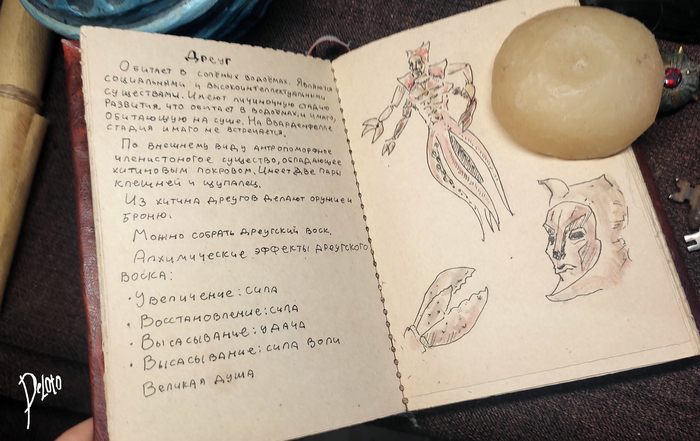 Дреуг
Обитает в солёных водоёмах. Являются
социальными и высокоинтеллектуальными
существами. Имеют личиночную стадию
развития, что обитает в водоёмах, и имаго,
обитающую на суше. На Вварденфелле
стадия имаго не встречается.
По внешнему виду антропоморфное
членистоногое существо, обладающее
хитиновым покровом. Имеет две пары
клешней и щупалец.
Из хитина дреугов делают оружие и
броню.
Можно собрать дреугский воск.
Алхимические эффекты дреугского
воска:
• Увеличение: сила
• Восстановление: сила
• Высасывание: удача
• Высасывание: сила воли
Великая душа
DeLoto